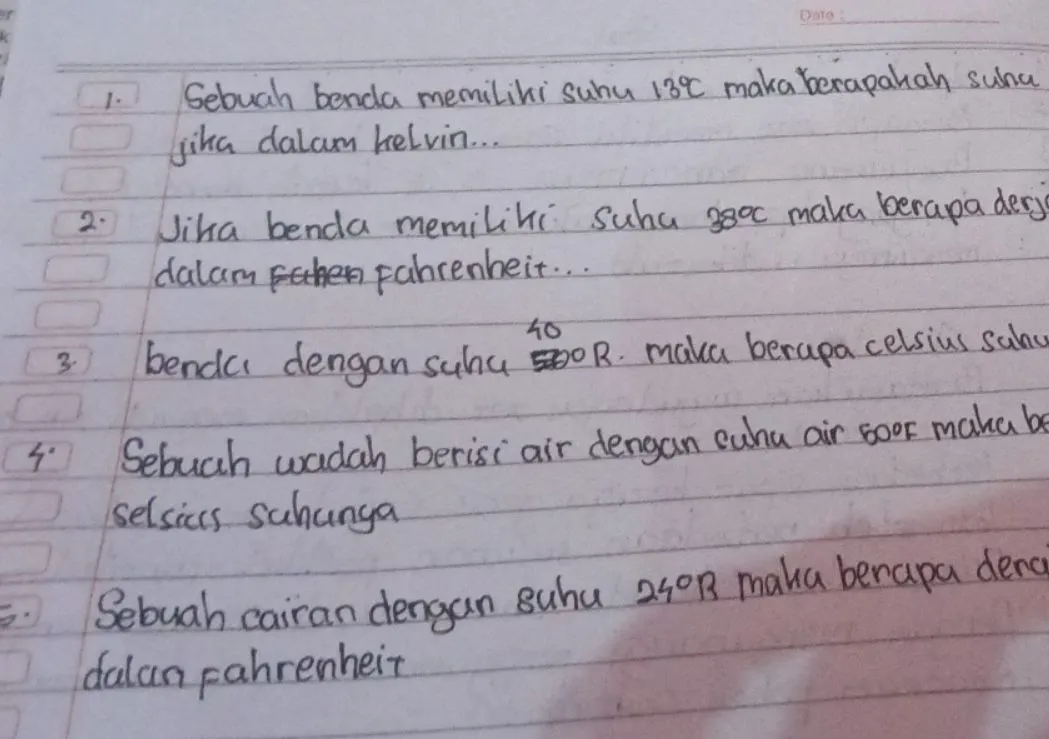 Date :
1. Sebuah benda memiliki suhu 13°C maka berapakah suhu
jika dalam kelvin...
2. Jika benda memiliki suhu 38°C maka berapa derj
dalam fahrenheit...
40
3. benda dengan suhu °R. maka berapa celsius suhu
4. Sebuah wadah berisi air dengan suhu air 50°F maka be
selsius suhunya
5. Sebuah cairan dengan suhu 24°R maka berapa dera
dalan fahrenheit